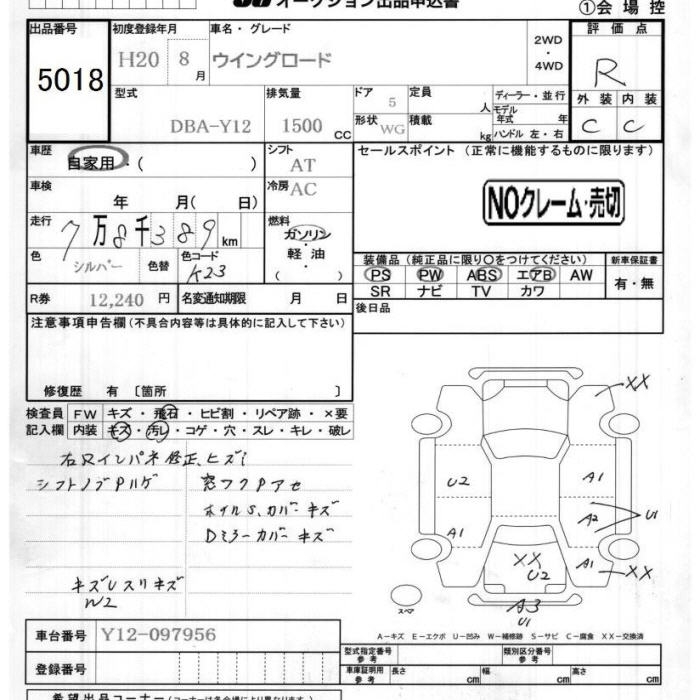 オークション出品申込書
①会場控
出品番号 初度登録年月 車名・グレード 2WD・4WD 評価点
5018 H20 8月 ウイングロード R
型式 排気量 ドア 5 定員 人 ディーラー・並行 外装 内装
DBA-Y12 1500 CC 形状 WG 積載 kg モデル年式 年式 ハンドル 左・右 C C
車歴 自家用・( ) シフト AT セールスポイント (正常に機能するものに限ります)
車検 年 月( 日) 冷房 AC NOクレーム・売切
走行 7万8千389km 燃料 ガソリン・軽油 ( )
色 シルバー 色替 色コード K23
装備品 (純正品に限り○をつけてください) 新車保証書
PS PW ABS エアB AW 有・無
SR ナビ TV カワ
R券 12,240円 名変通知期限 月 日 後日品
注意事項申告欄 (不具合内容等は具体的に記入して下さい)
修復歴 有 〔箇所 〕
検査員 FW キズ・飛石・ヒビ割・リペア跡・×要
記入欄 内装 キズ・汚レ・コゲ・穴・スレ・キレ・破レ
右リヤインパネ修正、ヒズミ
シフトノブPハゲ
窓フクPアセ
ホイルS、カバーキズ
Dミラーカバーキズ
キズUスリキズ
W2
XX
U2 A1
A2 U1
A1 A1
XX XX
U2
スペア A3
U1
A-キズ E-エクボ U-凹み W-補修跡 S-サビ C-腐食 XX-交換済
車台番号 Y12-097956
型式指定番号 参考 類別区分番号 参考
登録番号 車庫証明用 参考 長さ cm 幅 cm 高さ cm
希望出品コーナー (コーナーは各会場により異なります)